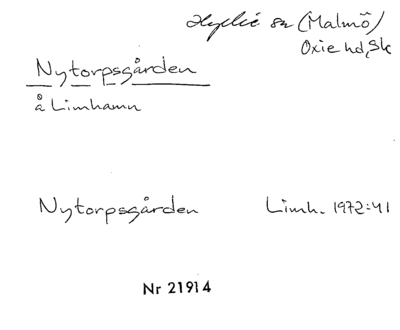 Hyllie sn (Malmö)
Oxie hd, Sk
Nytorpsgården
å Limhamn
Nytorpsgården Limh. 1972:41
Nr 21914